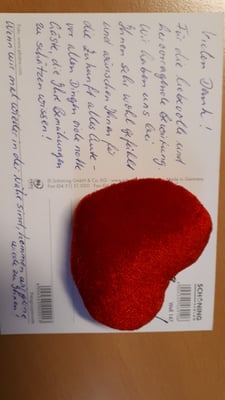 Vielen Dank!
Für die liebevolle und
hervorragende Bewirtung.
Wir haben uns bei
Ihnen sehr wohl gefühlt
und wünschen Ihnen für
die Zukunft alles Gute -
vor allen Dingen viele nette
Gäste, die Ihre Bemühungen
zu schätzen wissen!
Wenn wir mal wieder in der Nähe sind, kommen wir gerne
wieder zu Ihnen!
Schöning GmbH & Co. KG
Made in Germany
SCHÖNING